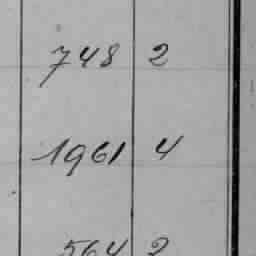 748 2
1961 4
564 2